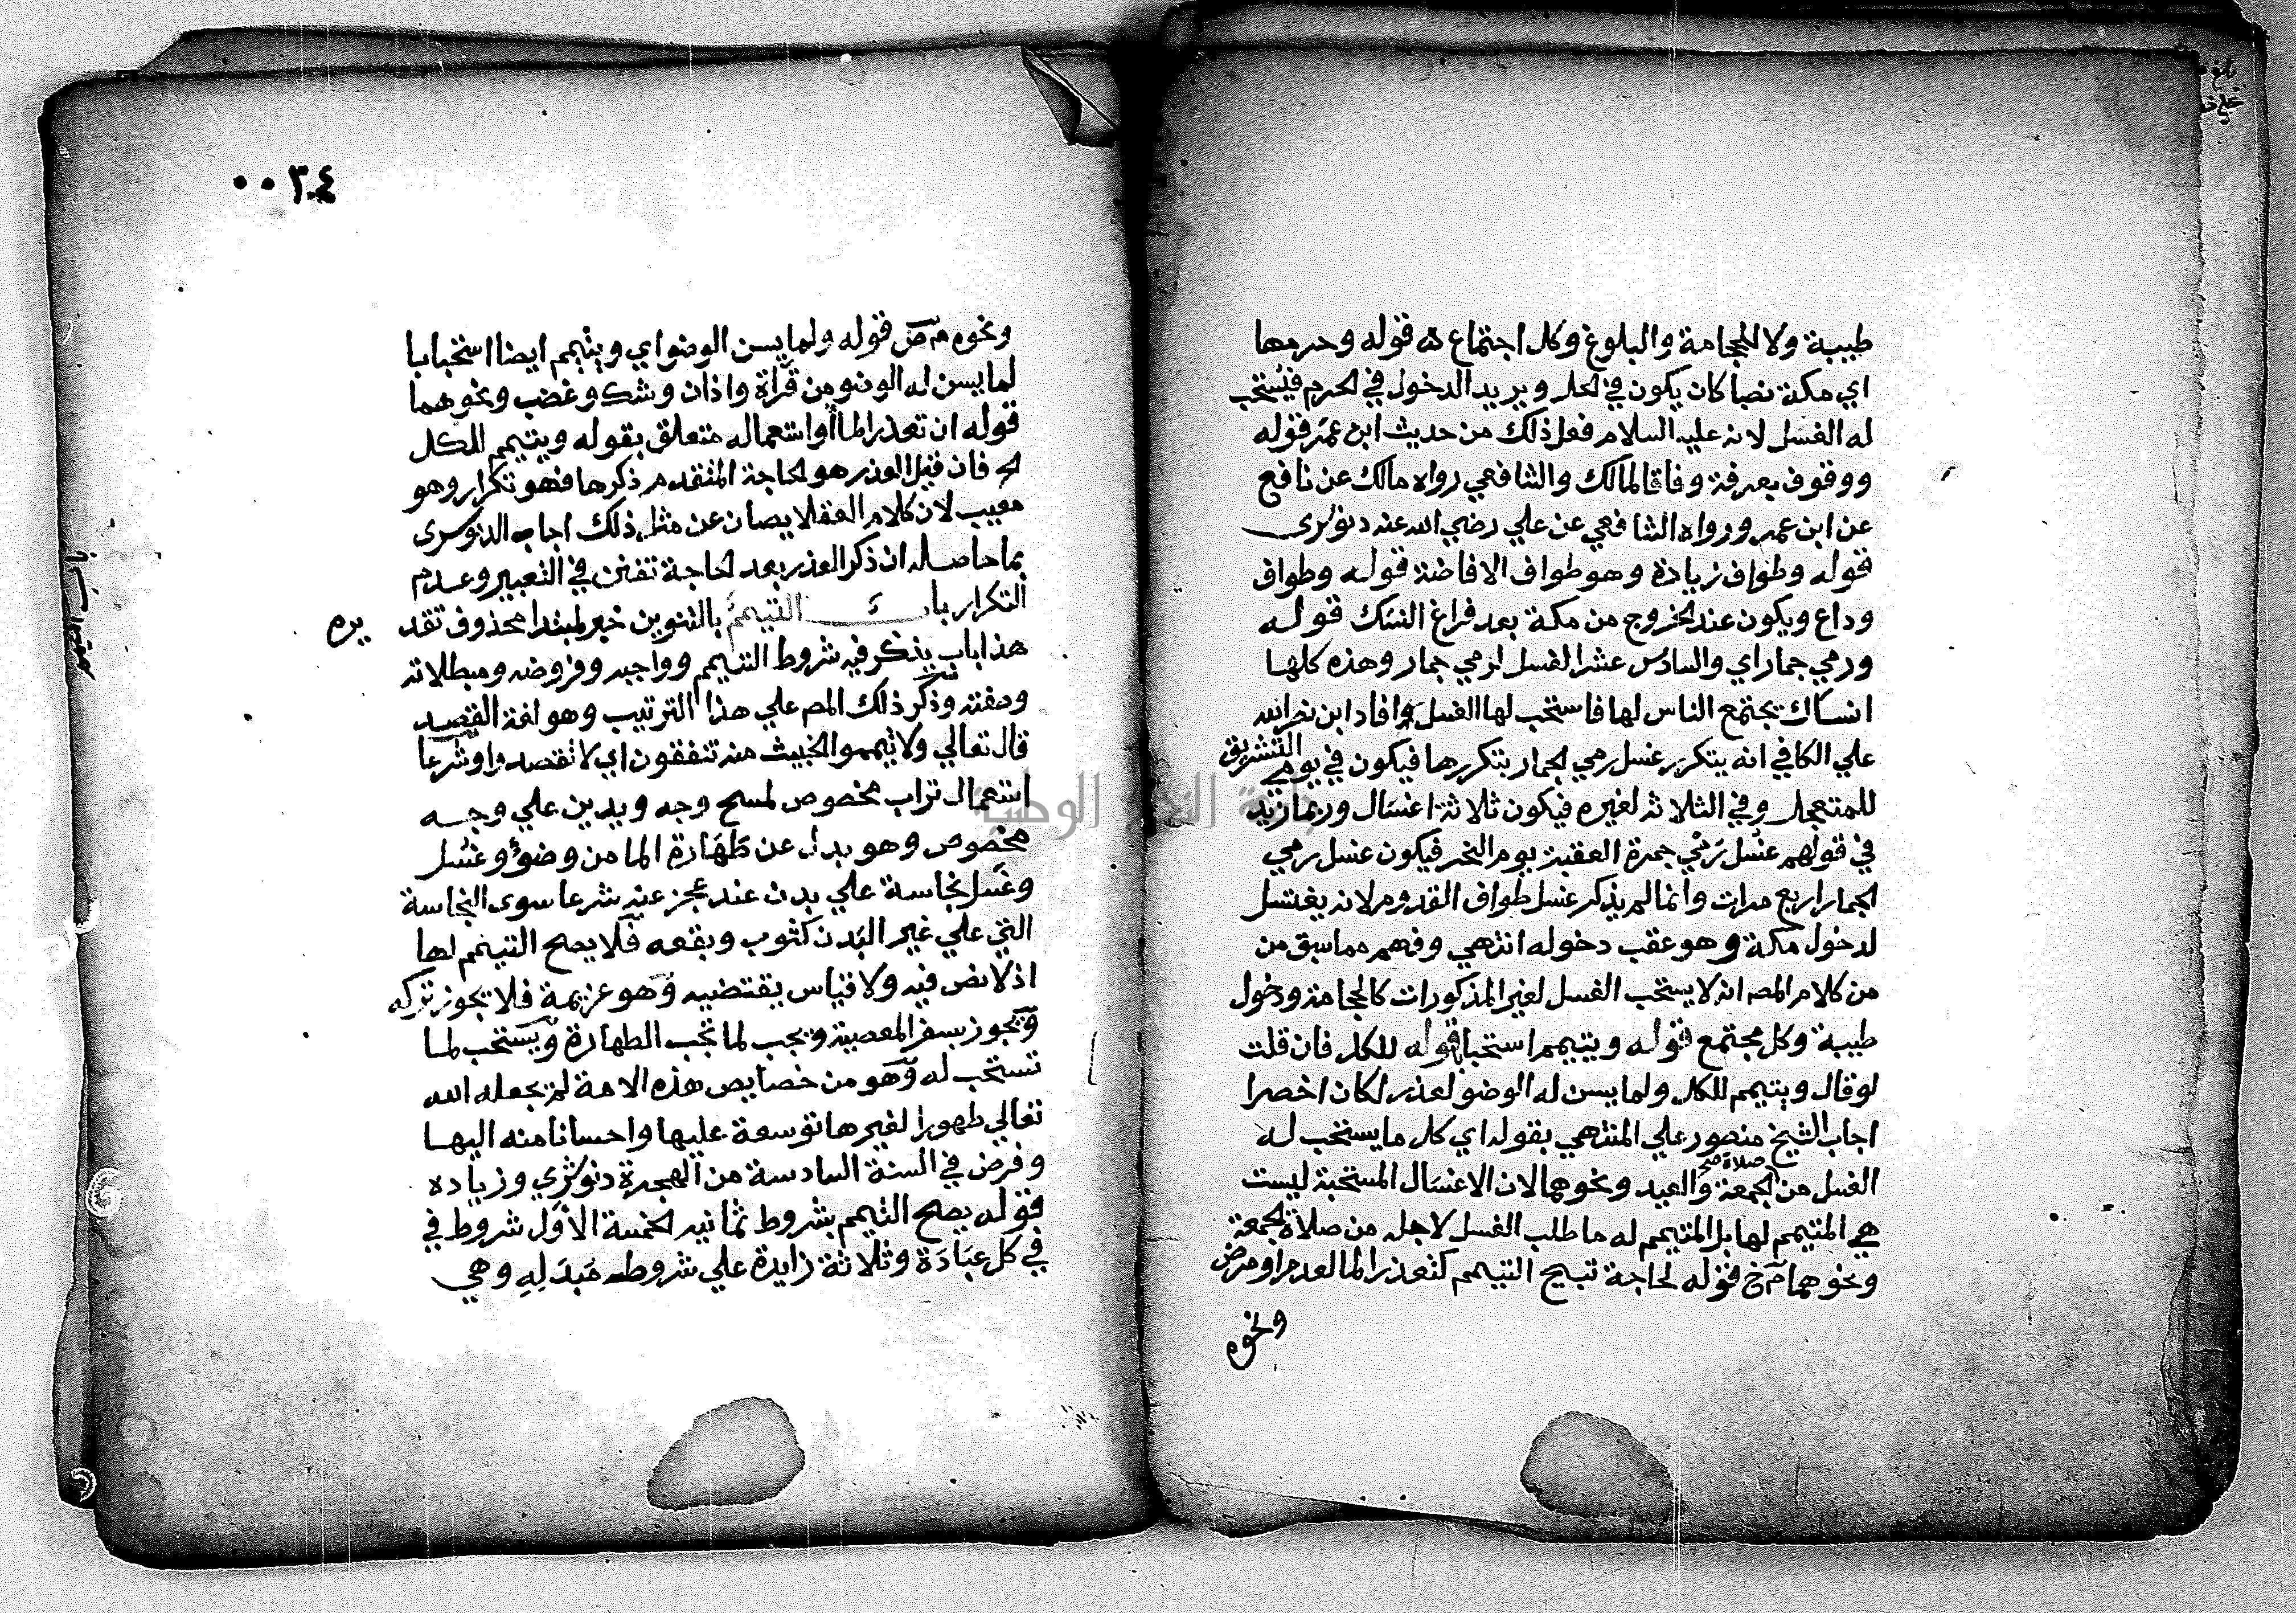 طيبة ولا للحجامة والبلوغ وكل اجتماع قوله وحرمها
اي مكة نصا كان يكون في الحل ويريد الدخول في الحرم فيستحب
له الغسل لانه عليه السلام فعل ذلك من حديث ابن عمر قوله
ووقوف بعرفة وفاقا لمالك والشافعي رواه مالك عن نافع
عن ابن عمر ورواه الشافعي عن علي رضي الله عنه دنوشرى
قوله وطواف زيادة وهو طواف الافاضة قوله وطواف
وداع ويكون عند الخروج من مكة بعد فراغ النسك قوله
ورمي جمار اي والسادس عشر الغسل لرمي جمار وهذه كلها
انساك يجتمع الناس لها فاستحب لها الغسل وافاد ابن نصر الله
علي الكافي انه يتكرر غسل رمي الجمار بتكررها فيكون في يومي التشريق
للمتعجل وفي الثلاثة لغيره فيكون ثلاثة اغسال وربما زيد
في قولهم غسل رمي جمرة العقبة يوم النحر فيكون غسل رمي
الجمار اربع مرات وانما لم يذكر غسل طواف القدوم لانه يغتسل
لدخول مكة وهو عقب دخوله انتهي وفهم مما سبق من
من كلام المص انه لا يستحب الغسل لغير المذكورات كالحجامة ودخول
طيبة وكل مجتمع قوله ويتيمم استحبابا قوله للكل فان قلت
لو قال ويتيمم للكل ولما يسن له الوضو لعذر لكان اخصرا
اجاب الشيخ منصور علي المنتهي بقوله اي كل ما يستحب له
الغسل من صلاة صح الجمعة والعيد ونحوهما لان الاغسال المستحبة ليست
هي المتيمم لها بل المتيمم له ما طلب الغسل لاجله من صلاة الجمعة
ونحوهما م خ قوله لحاجة تبيح التيمم كتعذر الما لعدم او مرض
ونحوه
٠٠٣٠٤
ونحوه م ص قوله ولما يسن الوضو اي ويتيمم ايضا استحبابا
لما يسن له الوضو من قراة واذان وشك وغضب ونحوهما
قوله ان تعذر الما أو استعماله متعلق بقوله ويتيمم للكل
الخ فان قيل العذر هو الحاجة المتقدم ذكرها فهو تكرار وهو
معيب لان كلام العقلا يصان عن مثل ذلك اجاب الدنوشرى
بما حاصله ان ذكر العذر بعد الحاجة تفنن في التعبير وعدم
التكرار باب التيمم بالتنوين خبر لمبتدا محذوف تقديره
هذا باب يذكر فيه شروط التيمم وواجبه وفروضه ومبطلاته
وصفته وذكر ذلك المص علي هذا الترتيب وهو لغة القصد
قال تعالي ولا تيمموا الخبيث منه تنفقون اي لا تقصدوا وشرعا
استعمال تراب مخصوص لمسح وجه ويدين علي وجه
مخصوص وهو بدل عن طهارة الما من وضوء وغسل
وغسل نجاسة علي بدن عند عجز عنه شرعا سوى النجاسة
التي علي غير البدن كثوب وبقعه فلا يصح التيمم لها
اذ لا نص فيه ولا قياس يقتضيه وهو عزيمة فلا يجوز تركه
ويجوز بسفر المعصية ويجب لما تجب الطهارة ويستحب لما
تستحب له وهو من خصايص هذه الامة لم يجعله الله
تعالي طهورا لغيرها توسعة عليها واحسانا منه اليها
وفرض في السنة السادسة من الهجرة دنوشري وزياده
قوله يصح التيمم بشروط ثمانيه الخمسة الأول شروط في
في كل عبادة وثلاثة زايدة علي شروط مبدله وهي